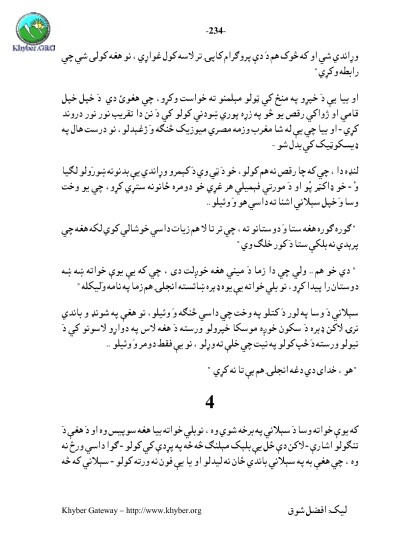 -234-
Khyber.ORG
وړاندې شي او که څوک هم دَ دې پروګرام کاپي تر لاسه کول غواړي ، نو هغه کولی شي چې
رابطه وکړي "
او بيا يې دَ خبرو په منځ کې ټولو مېلمنو ته خواست وکړو ، چې هغوئ دې دَ خپل خپل
قامي او ژواکي رقص يو څو په زړه پورې ښودنې کولو کې دَ نن دا تقريب نور نور دروند
کړي - او بيا چې يې له شا مغرب وزمه مصري ميوزيک څنګه وَ ژغېدلو ، نو درست هال په
ډيسکوټيک کې بدل شو -
لنډه دا ، چې که چا رقص نه هم کولو ، خو دَ ټي وي دَ کېمرو وړاندې يې بدنونه ښورَولو لګيا
وُ - خو ډاکټر پُو او دَ مورتي فېميلي هر غړي خو دومره ځانونه ستړي کړو ، چې يو وخت
وسا وَ خپل سېلاني اشنا ته داسې هو وَ ئيلو ..
" ګوره ګوره هغه ستا وَ دوستانو ته ، چې تر تا لا هم زيات داسې خوشالي کوي لکه هغه چې
پرېدي نه بلکې ستا دَ کور خلګ وي "
" دې خو هم .. ولې چې دا زما دَ مينې هغه خورِلت دی ، چې که يې يوې خواته ښه ښه
دوستان را پيدا کړو ، نو بلې خواته يې يوه ډېره ښائسته انجلۍ هم زما په نامه وليکله "
سېلاني دَ وسا په لور دَ کتلو په وخت چې داسې څنګه وَ ئيلو ، نو هغې په شونډ و باندې
نرۍ لاکن ډېره دَ سکون خوږه موسکا خپرولو ورسته دَ هغه لاس په دواړو لاسونو کې دَ
نيولو ورسته دَ ځپ کولو په نيت چې خلې ته وړلو ، نو يې فقط دومر وَ ئيلو ..
" هو ، خدای دې دغه انجلۍ هم يې تا نه کړي "
4
که يوې خواته وسا دَ سېلاني په برخه شوې وه ، نو بلې خواته بيا هغه سوپيس وه او دَ هغې دَ
تنګولو اشارې - لاکن دې ځل يې بلېک مېلنګ څه څه په پردې کې کولو - ګوا داسې ورځ نه
وه ، چې هغې به په سېلاني باندې ځان نه ليدلو او يا يې فون نه ورته کولو - سېلاني که څه
Khyber Gateway – http://www.khyber.org
ليک: افضل شوق